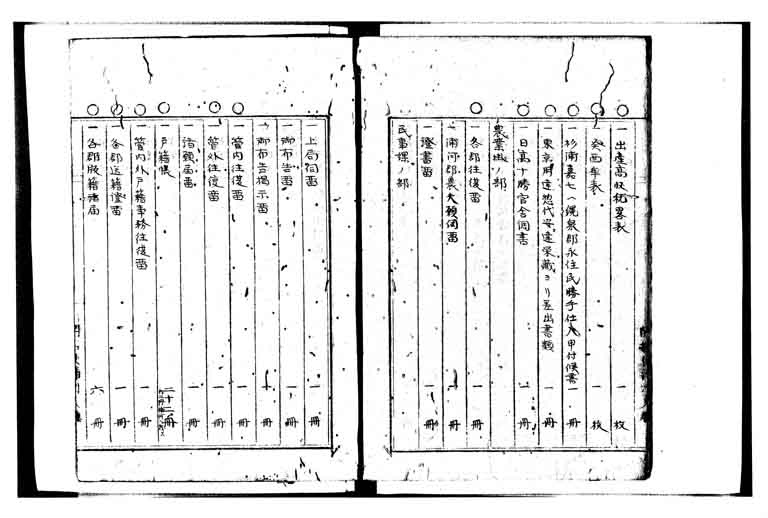 一 出産高收税畧表 一 枚
一 癸酉年表 一 枚
一 杉浦嘉七ヘ幌泉郡永住民勝手仕入申付候書 一 冊
一 東京用達惣代安達栄蔵ヨリ差出書類 一 冊
一 日高十勝官舎伺書 一 冊
農業掛ノ部
一 各郡往復留 一 冊
一 浦河郡農夫願伺留 一 冊
一 證書留 一 冊
民事課ノ部
一 上局伺留 一 冊
一 御布告留 一 冊
一 御布告掲示留 一 冊
一 管内往復留 一 冊
一 管外往復留 一 冊
一 諸願届留 一 冊
一 戸籍帳 二十二冊
一 管内外戸籍事務往復留 一 冊
一 各郡送籍證留 一 冊
一 各郡脱籍諸届 六 冊